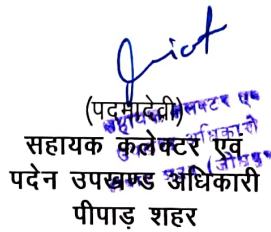 (पदमादेवी)
सहायक कलेक्टर एवं
पदेन उपखण्ड अधिकारी
पीपाड़ शहर